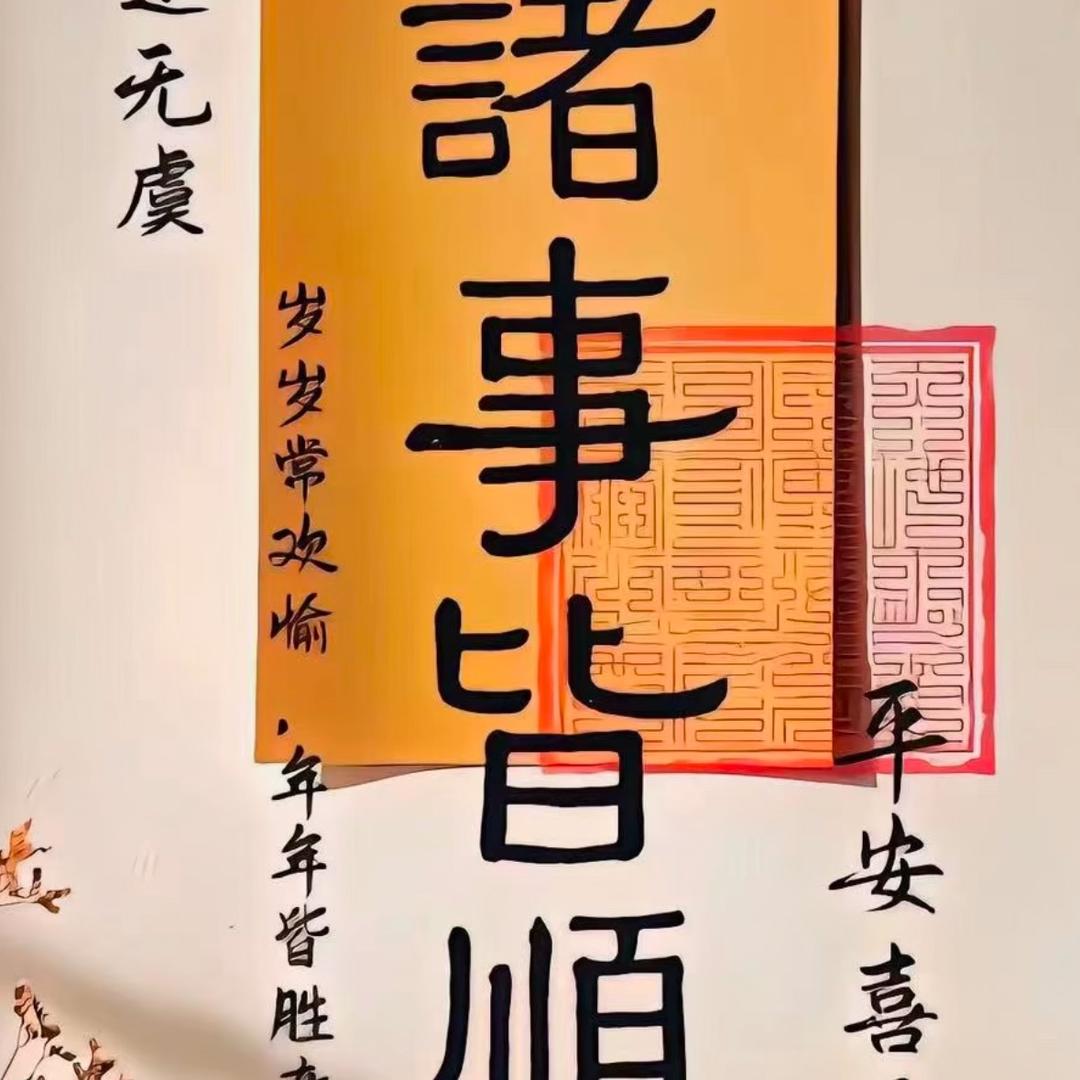 平安喜
諸事皆順
岁岁常欢愉·年年皆胜
无虞